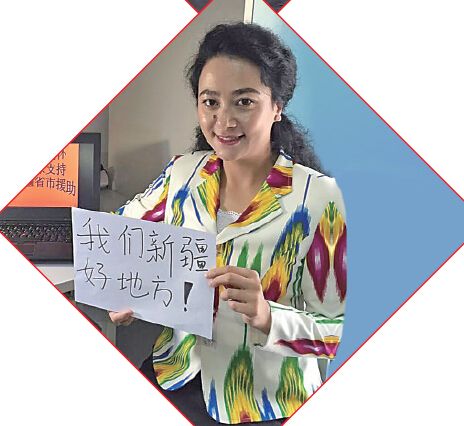 怀
支持
省市援助
我们新疆
好地方！